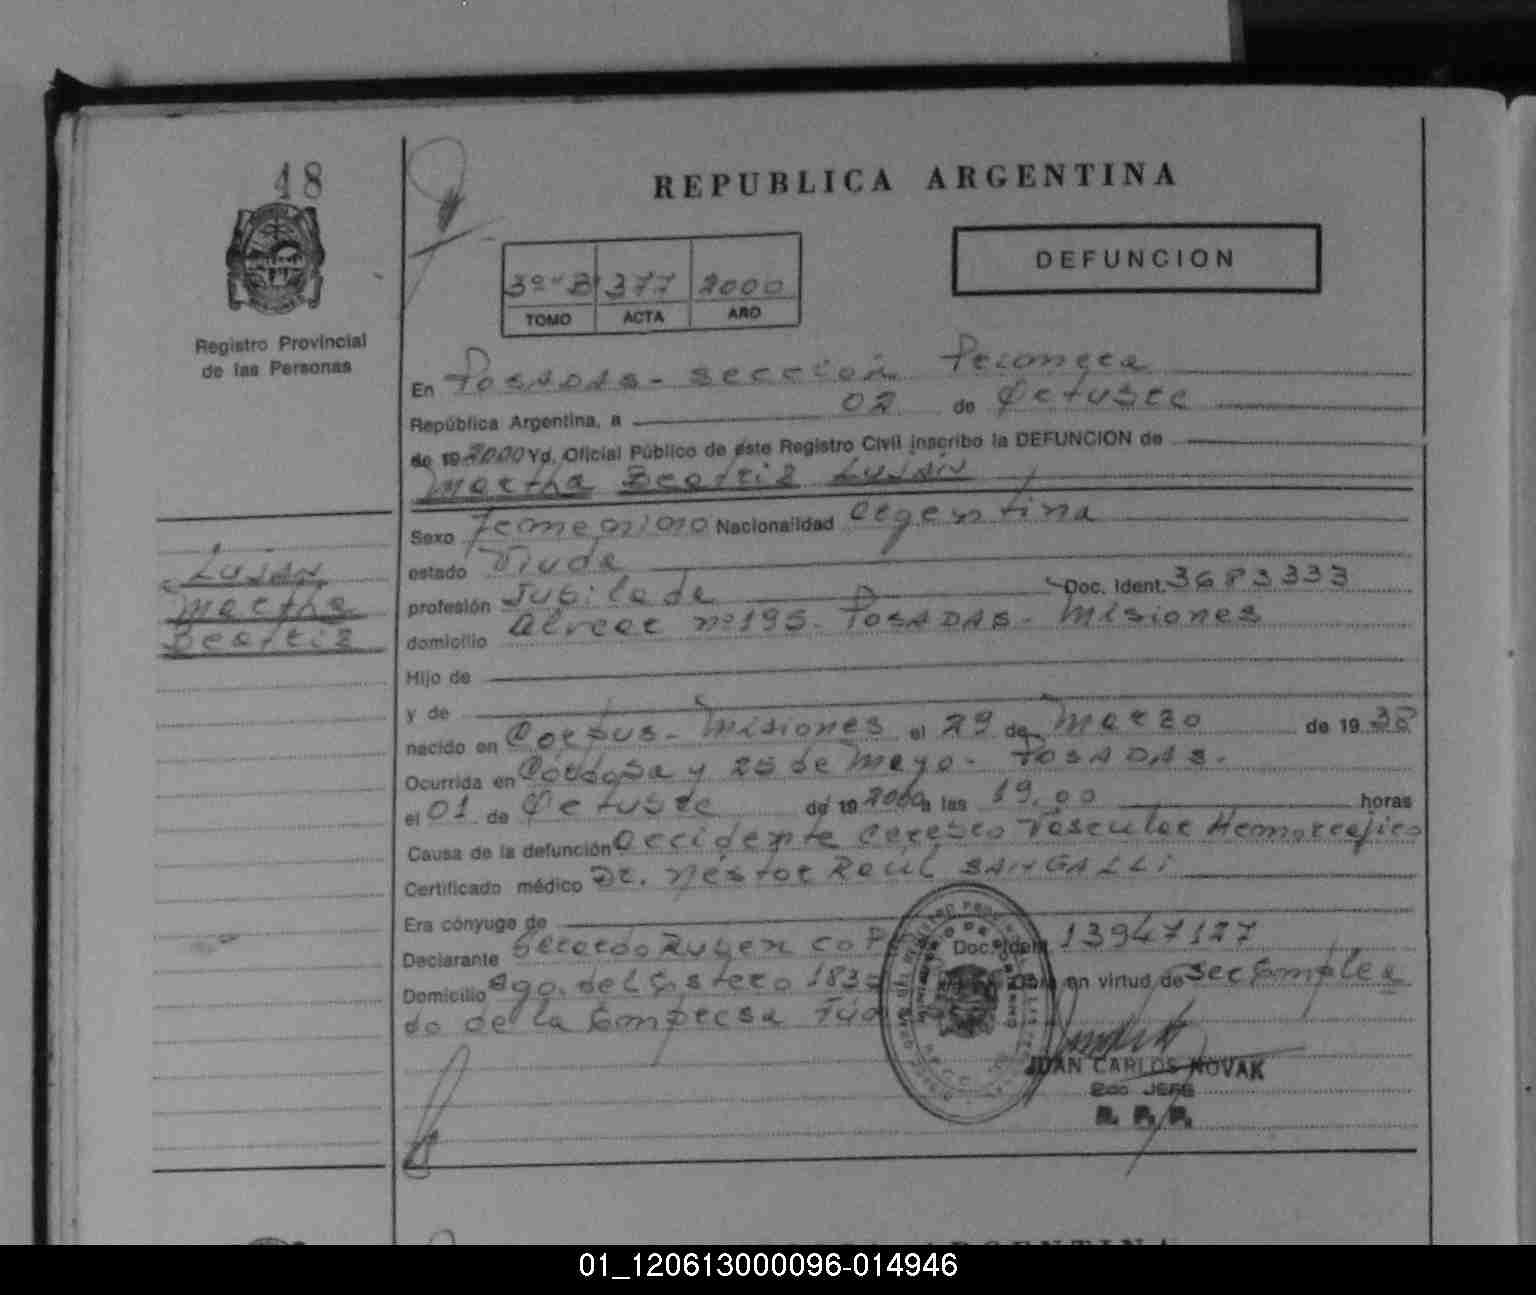 48
REPUBLICA ARGENTINA
DEFUNCION
3º-B 377 2000
TOMO ACTA AÑO
Registro Provincial
de las Personas
En Posadas - Sección Primera
República Argentina, a 02 de Octubre
de 19 2000 Yo, Oficial Público de este Registro Civil inscribo la DEFUNCION de
Martha Beatriz LUJÁN
Sexo Femenino Nacionalidad Argentina
estado Viuda
profesión Jubilada Doc. Ident. 3683333
domicilio Alvear nº 195 - POSADAS - Misiones
Hijo de
y de
nacido en Corpus - Misiones el 29 de Marzo de 19 38
Ocurrida en Córdoba y 25 de Mayo - POSADAS.
el 01 de Octubre de 19 2000 a las 19,00 horas
Causa de la defunción Accidente Cerebro Vascular Hemorrajico
Certificado médico Dr. Néstor Raúl SANGALLI
Era cónyuge de
Declarante Gerardo Ruben Doc. Ident. 13947127
Domicilio Sgo. del Estero 183 Obra en virtud de Ser Emplea
do de la Empresa
LUJÁN
Martha
Beatriz
JUAN CARLOS NOVAK
2do JEFE
R. P. P.
01_120613000096-014946